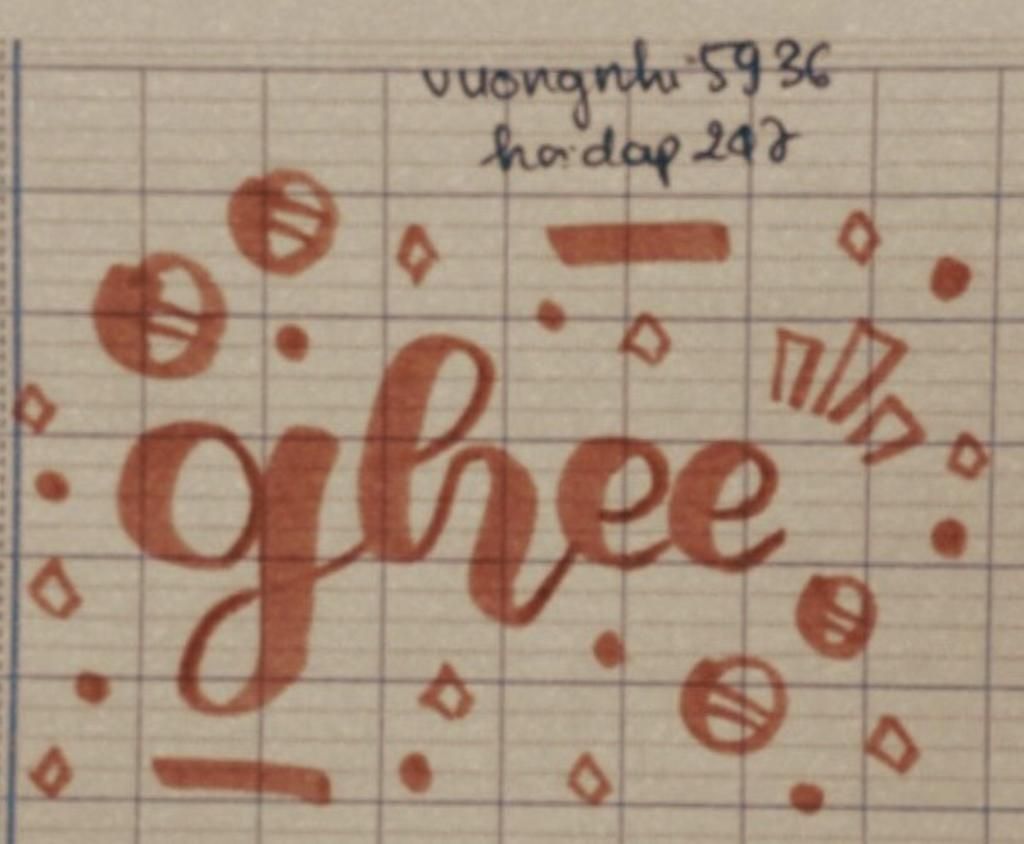 vuongnhi 5936
hoidap 247
ghee